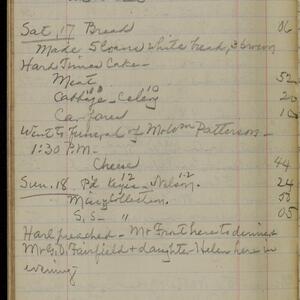 Sat, 17 Bread 06
Made 5 loaves white bread, 3 brown
Hard Times Cake -
Meat 52
10 10
Cabbage - Celery 20
Car fares 10
Went to funeral of Patterson -
1:30 P.M. -
Cheese 44
12 12
Sun. 18 P'd Keyes - Nelson. 24
Mary Collection.
S. S. - " 05
Harl preached - Mr Front here to dinner
Mr G. D. Fairfield & daughter Helen here in
evening